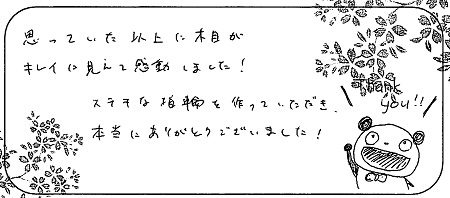 思っていた以上に木目が
キレイに見えて感動しました!
ステキな指輪を作っていただき、
本当にありがとうございました!
Thank
you!!